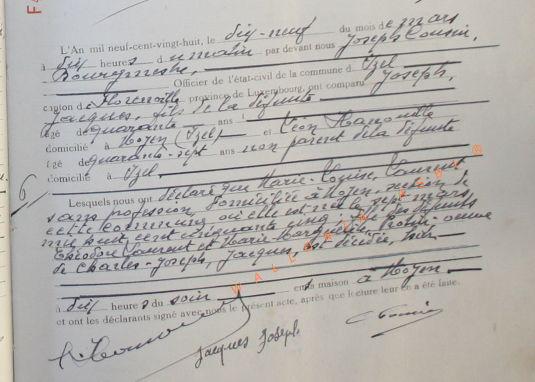 L'An mil neuf-cent-vingt-huit, le dix-neuf du mois de mars
à dix heures du matin par devant nous Joseph Cousin,
Bourgmestre, Officier de l'état-civil de la commune d Izel
canton de Florenville province de Luxembourg, ont comparu Joseph,
Jacques, fils de la défunte
âgé de quarante ans
domicilié à Moyen (Izel) et Léon
âgé de quarante-sept ans non parent de la défunte
domicilié à Izel
6
Lesquels nous ont déclaré que Marie-Louise, Laurent
sans profession domiciliée à Moyen, section de
cette commune où elle est née le sept mars
mil huit cent cinquante cinq, fille des défunts
Théodore Laurent et Marie Marguerite, veuve
de Charles-Joseph, Jacques, est décédée, hier
à dix heures du soir en sa maison à Moyen
et ont les déclarants signé avec nous le présent acte, après que lecture leur en a été faite.
Jacques Joseph